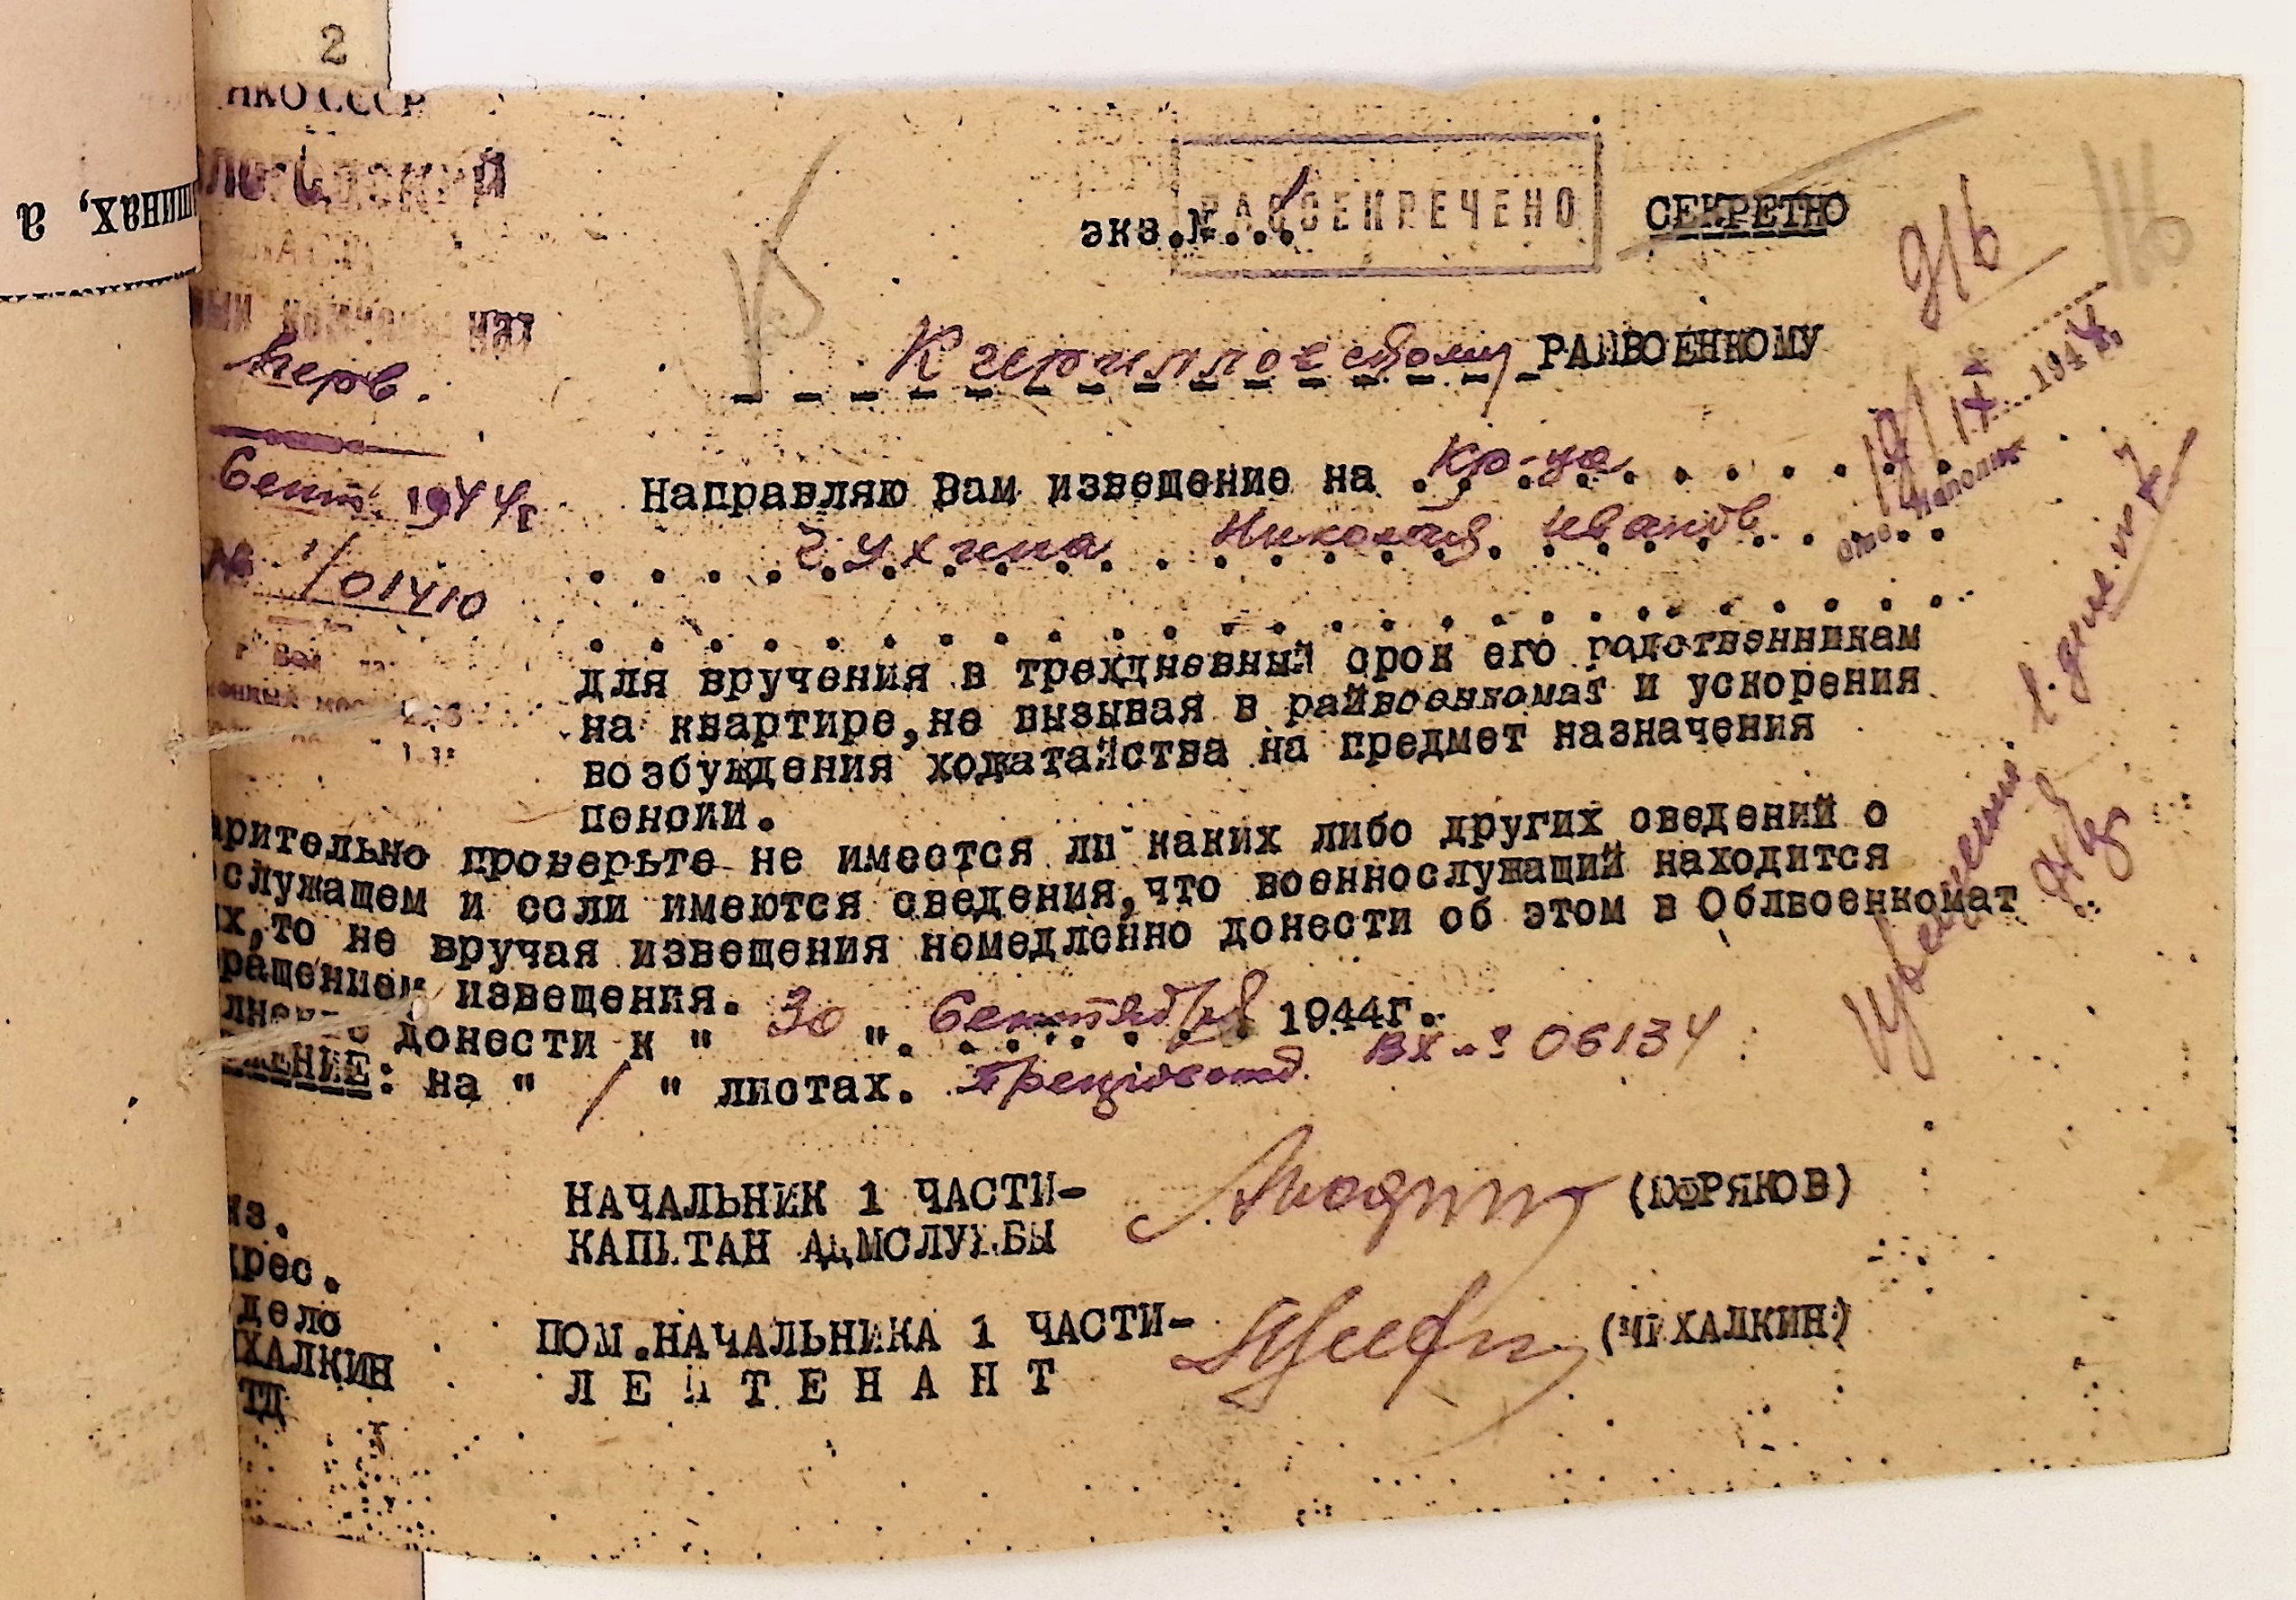 2
НКО СССР
экз.№...
РАССЕКРЕЧЕНО
СЕКРЕТНО
916
116
РАЙВОЕНКОМУ
Сент. 1944г
№ 1/01410
Направляю Вам извещение на кр-ца
Чухина Николая Иванов.
для вручения в трехдневный срок его родственникам
на квартире,не вызывая в райвоенкомат и ускорения
возбуждения ходатайства на предмет назначения
пенсии.
арительно проверьте не имеется ли каких либо других сведений о
служащем и если имеются сведения,что военнослужащий находится
х,то не вручая извещения немедленно донести об этом в Облвоенкомат
ращением извещения.
донести к "30". Сентября 1944г.
ЖЕНИЕ: на " 1 " листах.
вх. 06134
НАЧАЛЬНИК 1 ЧАСТИ-
КАПИТАН АДМСЛУЖБЫ
ПОМ.НАЧАЛЬНИКА 1 ЧАСТИ-
ЛЕЙТЕНАНТ
(МИХАЛКИН)
из.
дрес.
дело
ИХАЛКИН
ТД
шинах, а